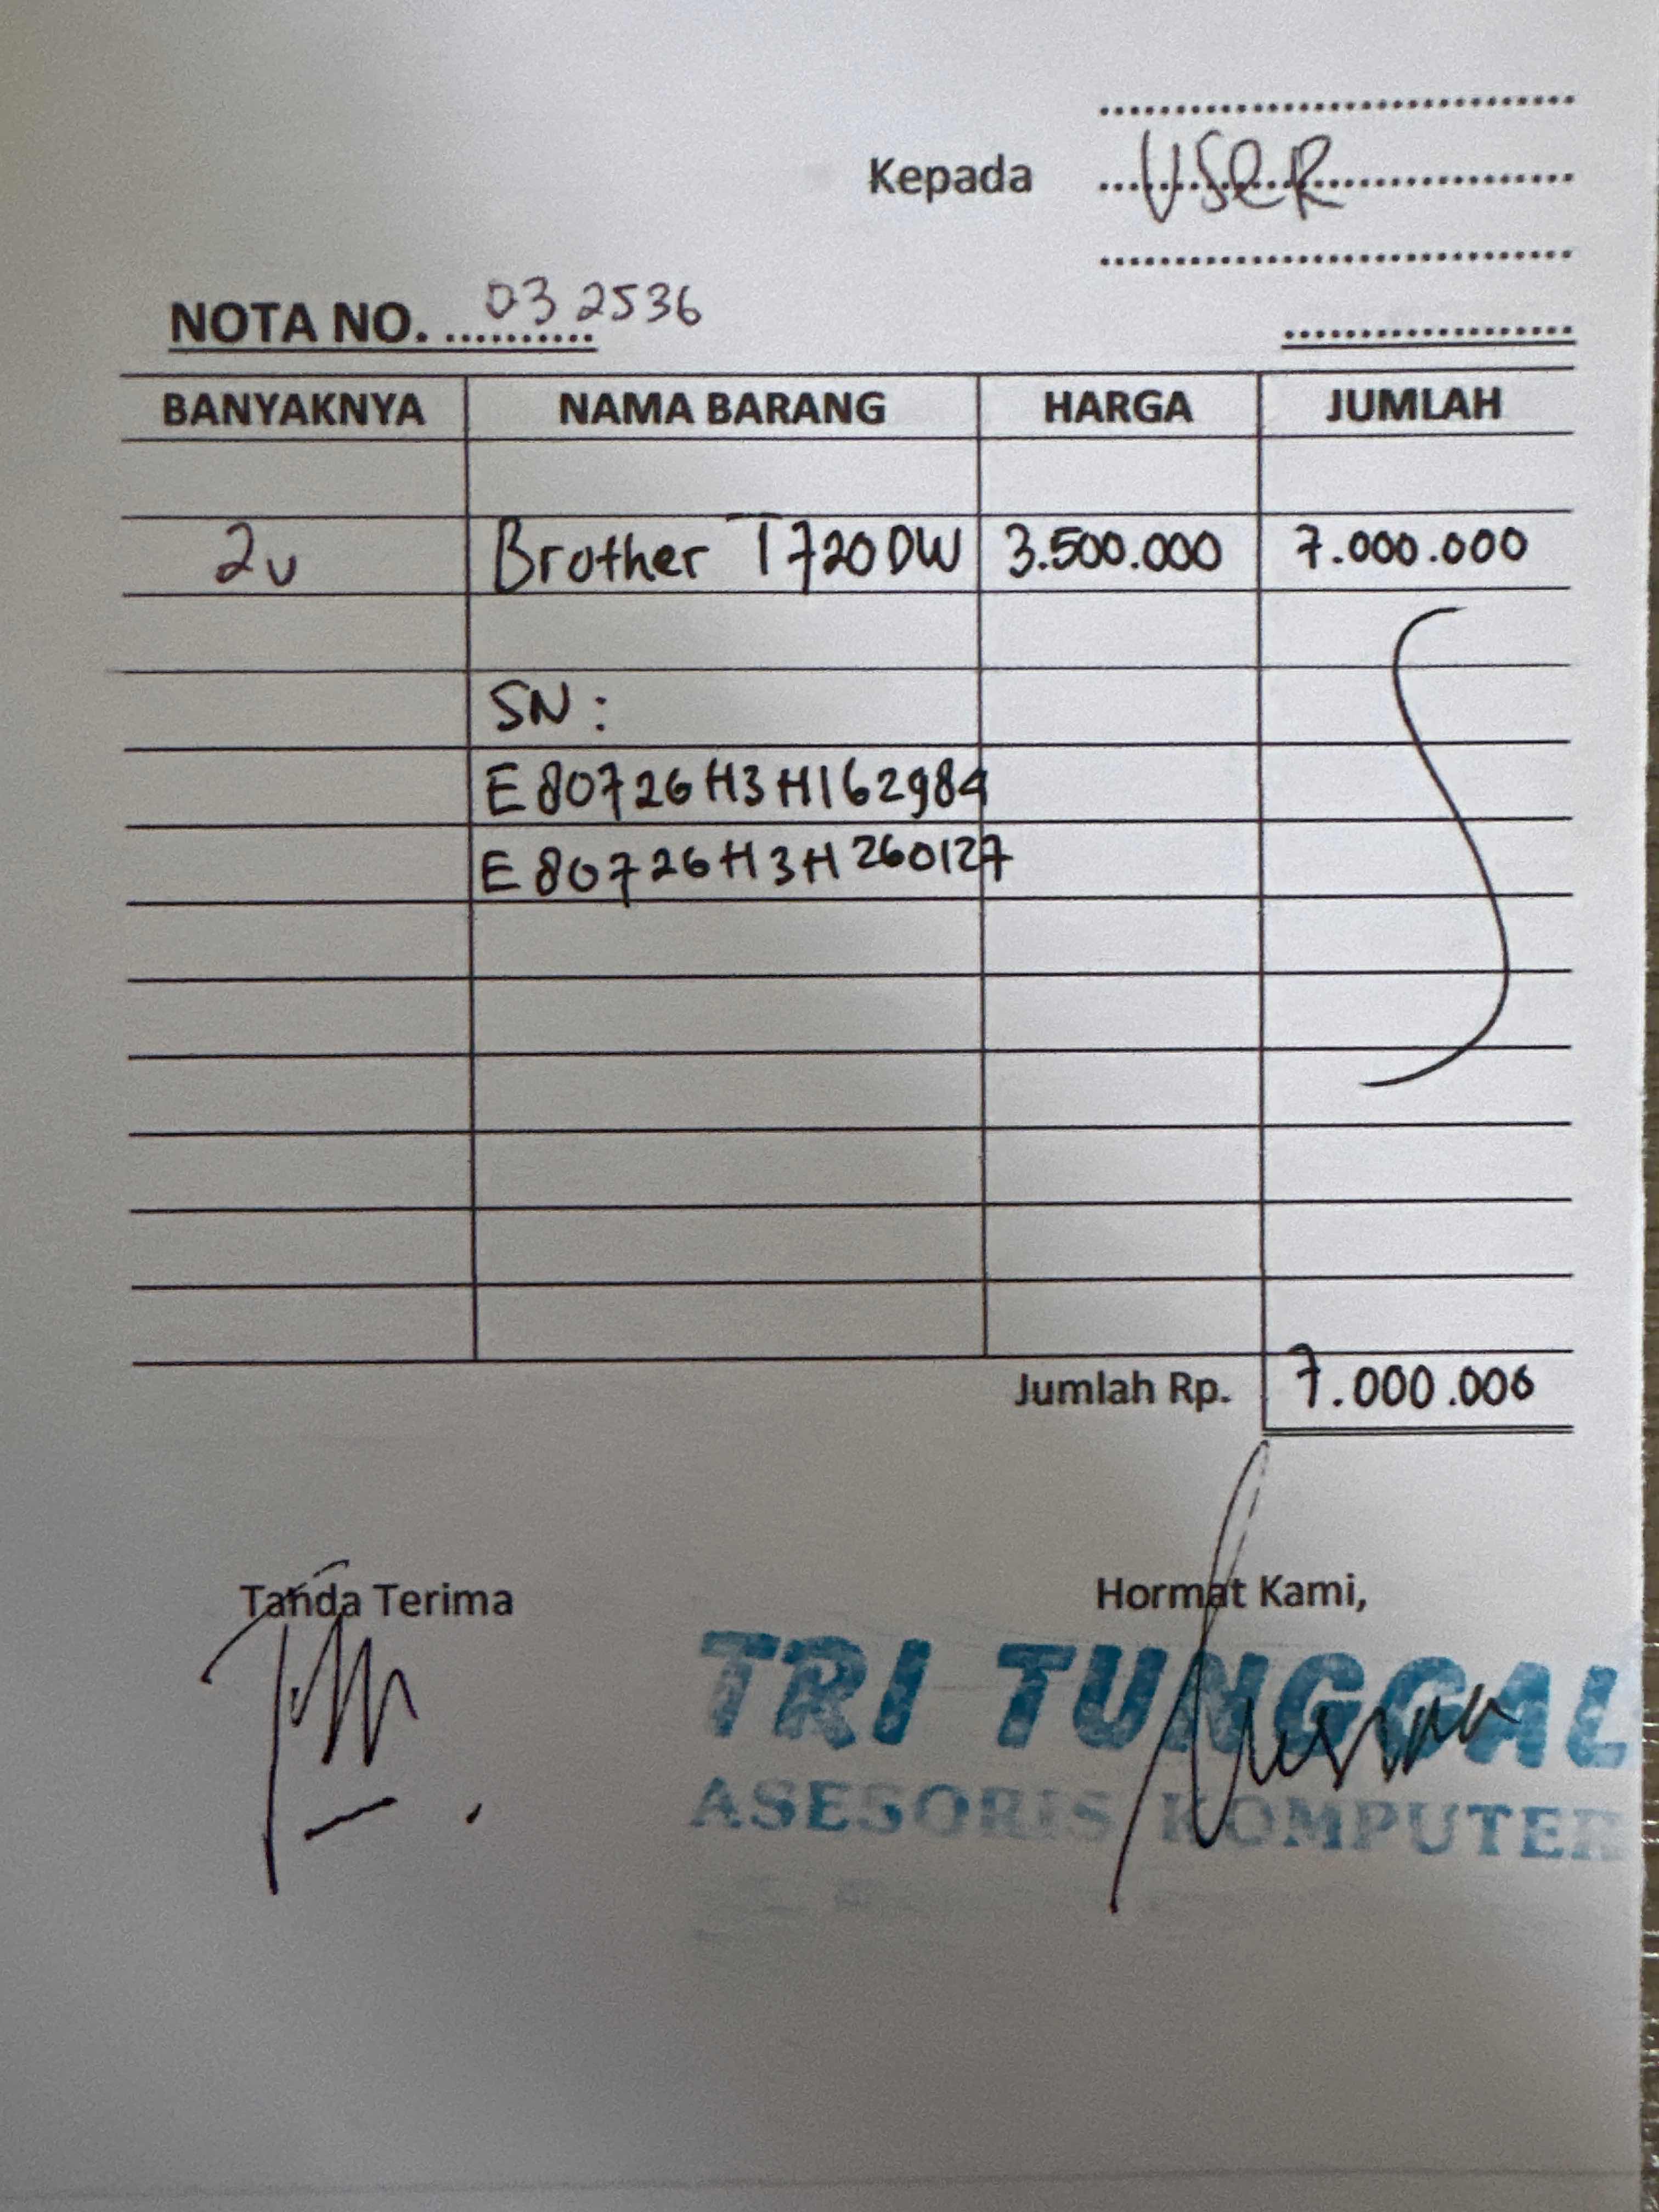 Kepada USER
NOTA NO. 032536
BANYAKNYA NAMA BARANG HARGA JUMLAH
2u Brother T720DW 3.500.000 7.000.000
SN :
E80726H3H162984
E80726H3H260127
Jumlah Rp. 7.000.000
Tanda Terima Hormat Kami,
TRI TUNGGAL
ASESORIS KOMPUTER